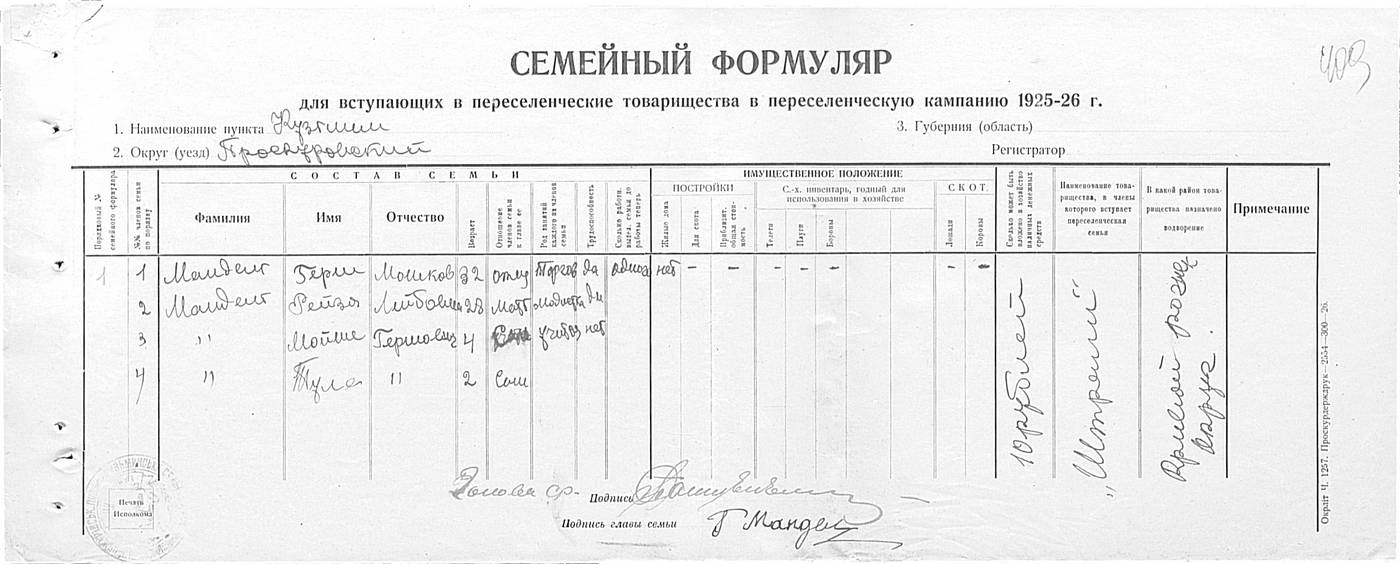 409
СЕМЕЙНЫЙ ФОРМУЛЯР
для вступающих в переселенческие товарищества в переселенческую кампанию 1925-26 г.
1. Наименование пункта Кузьмин
3. Губерния (область)
2. Округ (уезд) Проскуровский
Регистратор
Порядковый № семейного формуляра
№№ членов семьи по порядку
СОСТАВ СЕМЬИ
Фамилия
Имя
Отчество
Возраст
Отношение членов семьи к главе ее
Род занятий каждого из членов семьи
Трудоспособность
Сколько работн. выдел. семьей до работы теперь
ИМУЩЕСТВЕННОЕ ПОЛОЖЕНИЕ
ПОСТРОЙКИ
Жилые дома
Для скота
Приблизит. общая стоимость
С.-х. инвентарь, годный для использования в хозяйстве
Телеги
Плуги
Бороны
СКОТ.
Лошади
Коровы
Сколько может быть вложено в хозяйство наличных денежных средств
Наименование товарищества, в члены которого вступает переселенческая семья
В какой район товарищества назначено водворение
Примечание
1 1 Мандель Герш Мошков 32 отец Торгов да один нет - - - - - - -
2 Мандель Рейзя Лейбовна 28 мать модистка да
3 " Мойше Гершович 4 учится нет
4 " " 2 Сын
10 рублей
"Штрений"
Кривой рог
округ
Голова ср. Подпись
Подпись главы семьи Г Мандель
Печать
Исполкома
Окрліт Ч. 1257. Проскурдерждрук—2554—300—26.